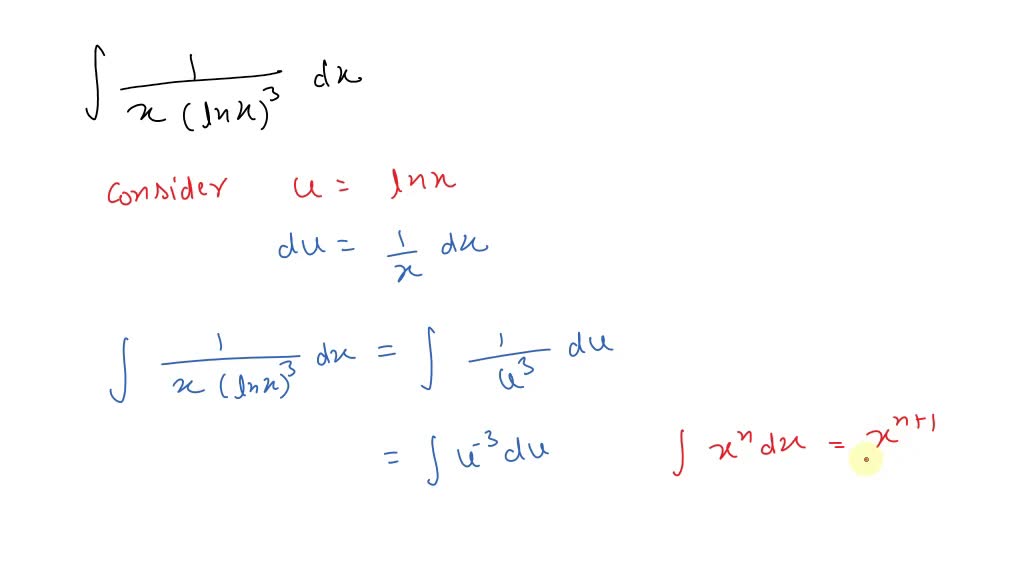 ∫ 1/(x (lnx)³) dx
Consider u = lnx
du = 1/x dx
∫ 1/(x (lnx)³) dx = ∫ 1/u³ du
= ∫ u⁻³ du ∫ xⁿ dx = xⁿ⁺¹